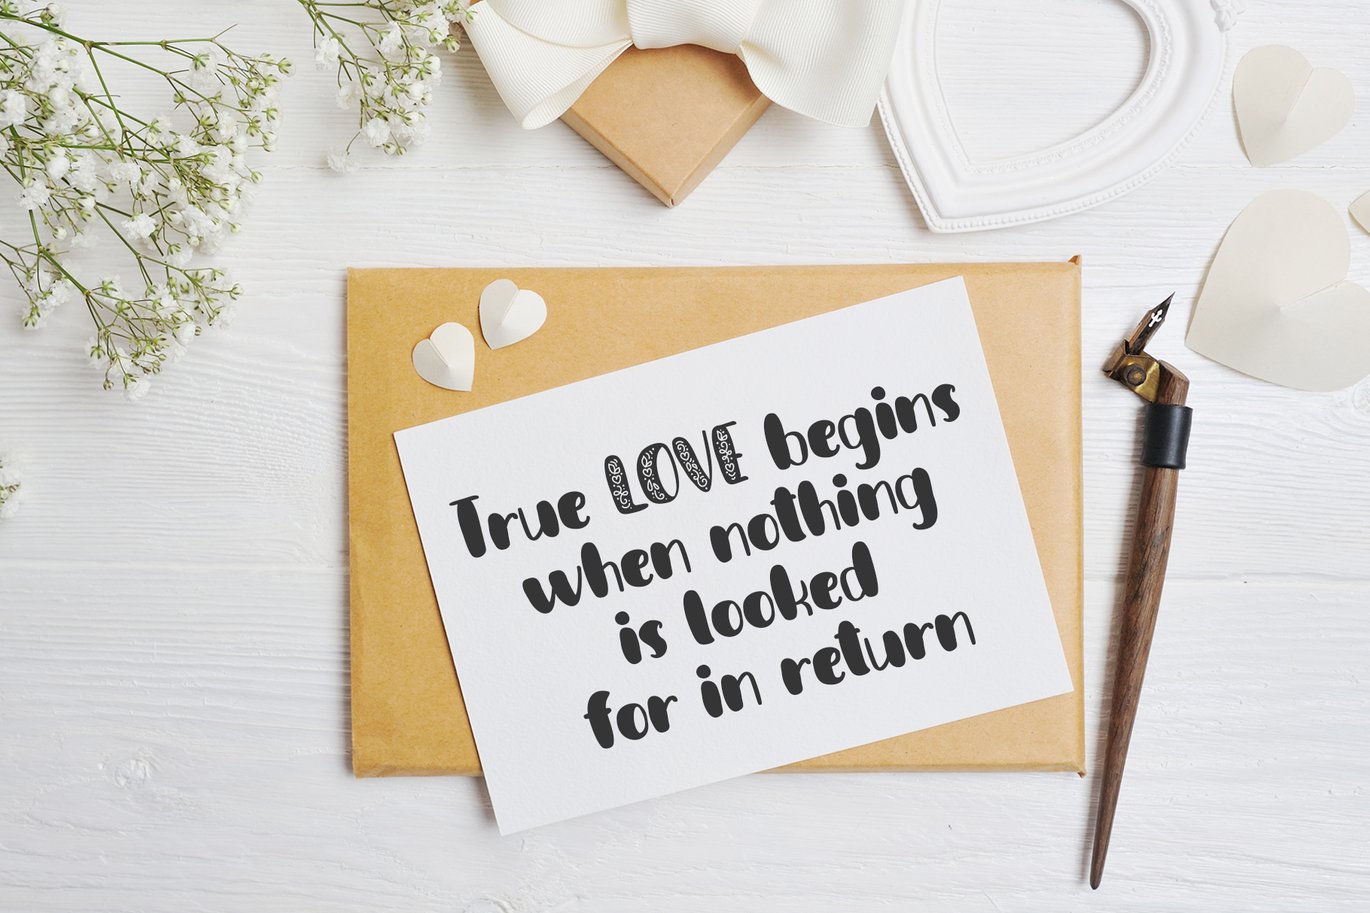 True LOVE begins
when nothing
is looked
for in return